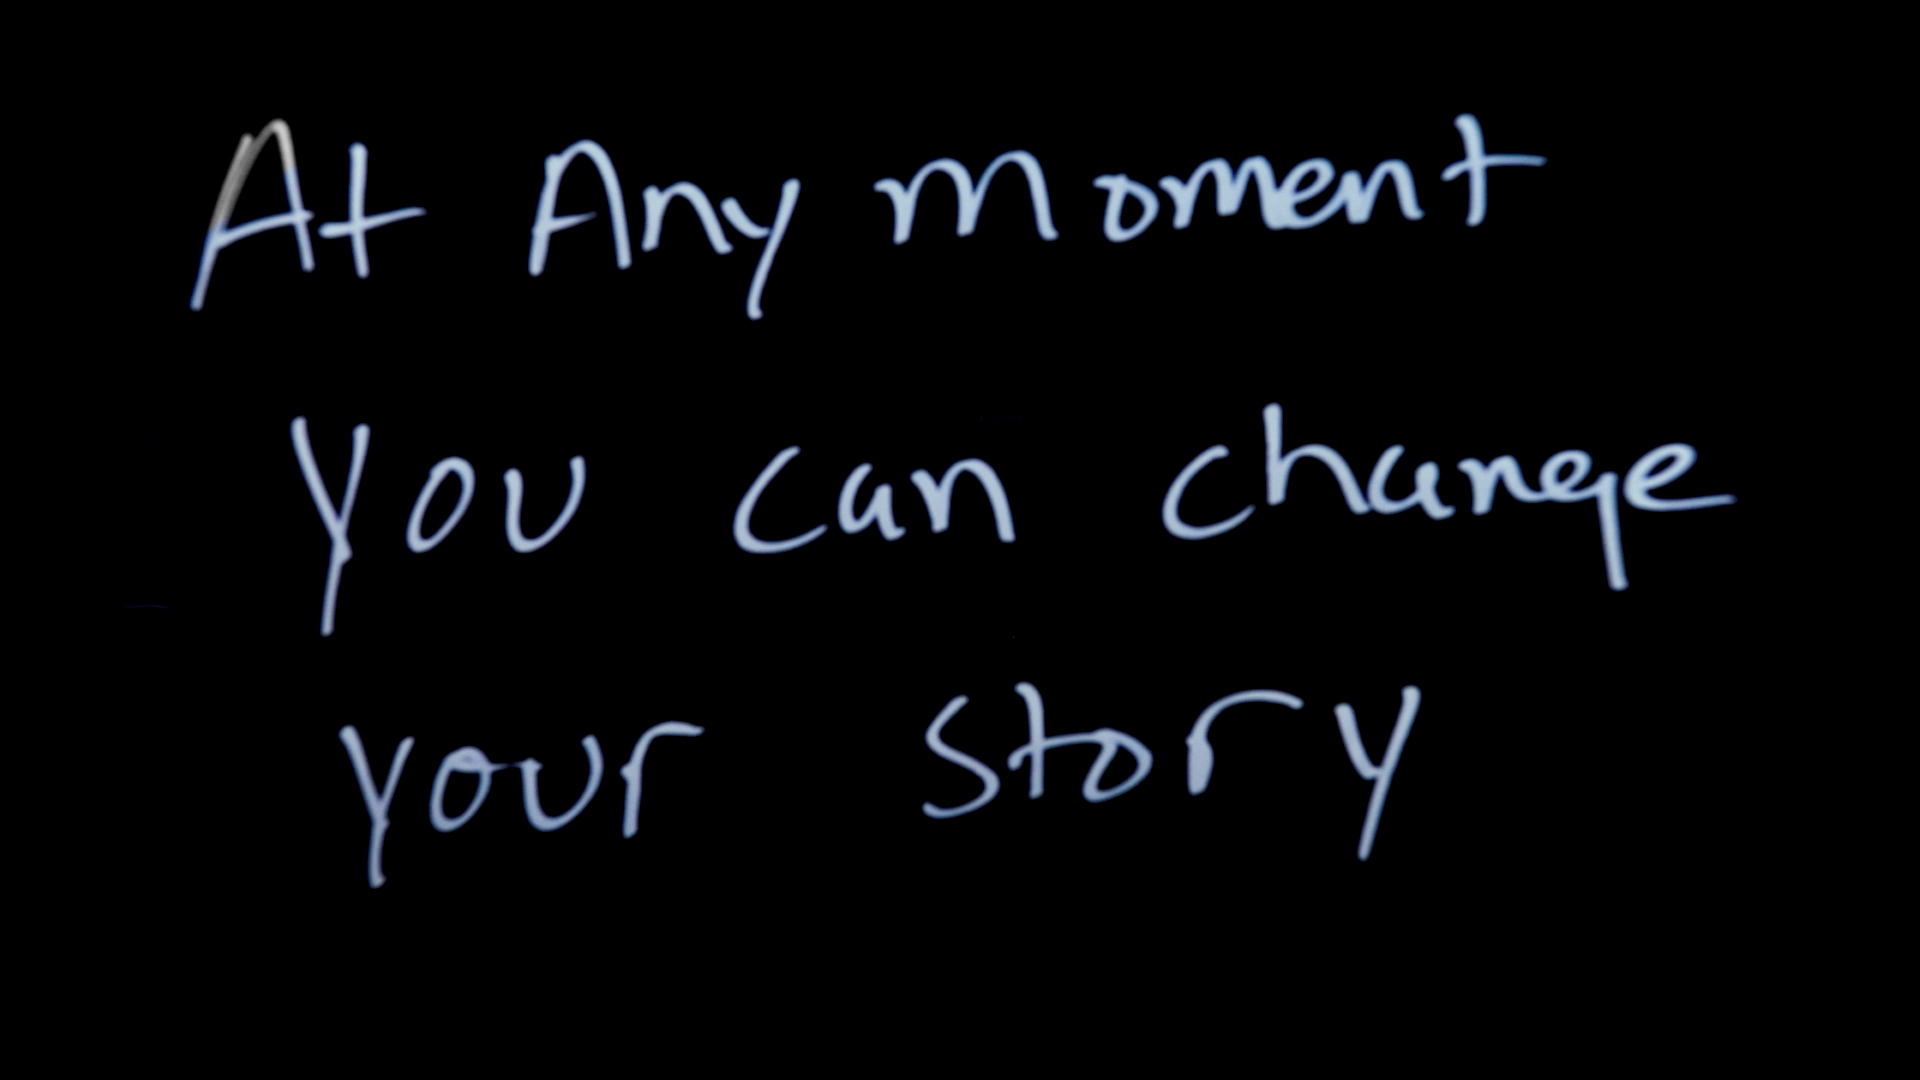 At Any moment
you can change
your story